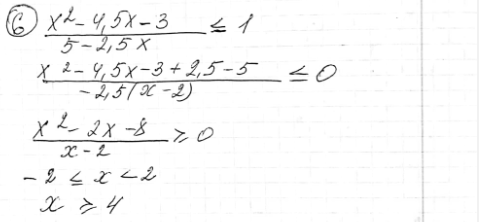 ⑥ (x² - 4,5x - 3)/(5 - 2,5x) ≤ 1
(x² - 4,5x - 3 + 2,5 - 5)/(-2,5(x - 2)) ≤ 0
(x² - 2x - 8)/(x - 2) ≥ 0
-2 ≤ x < 2
x ≥ 4